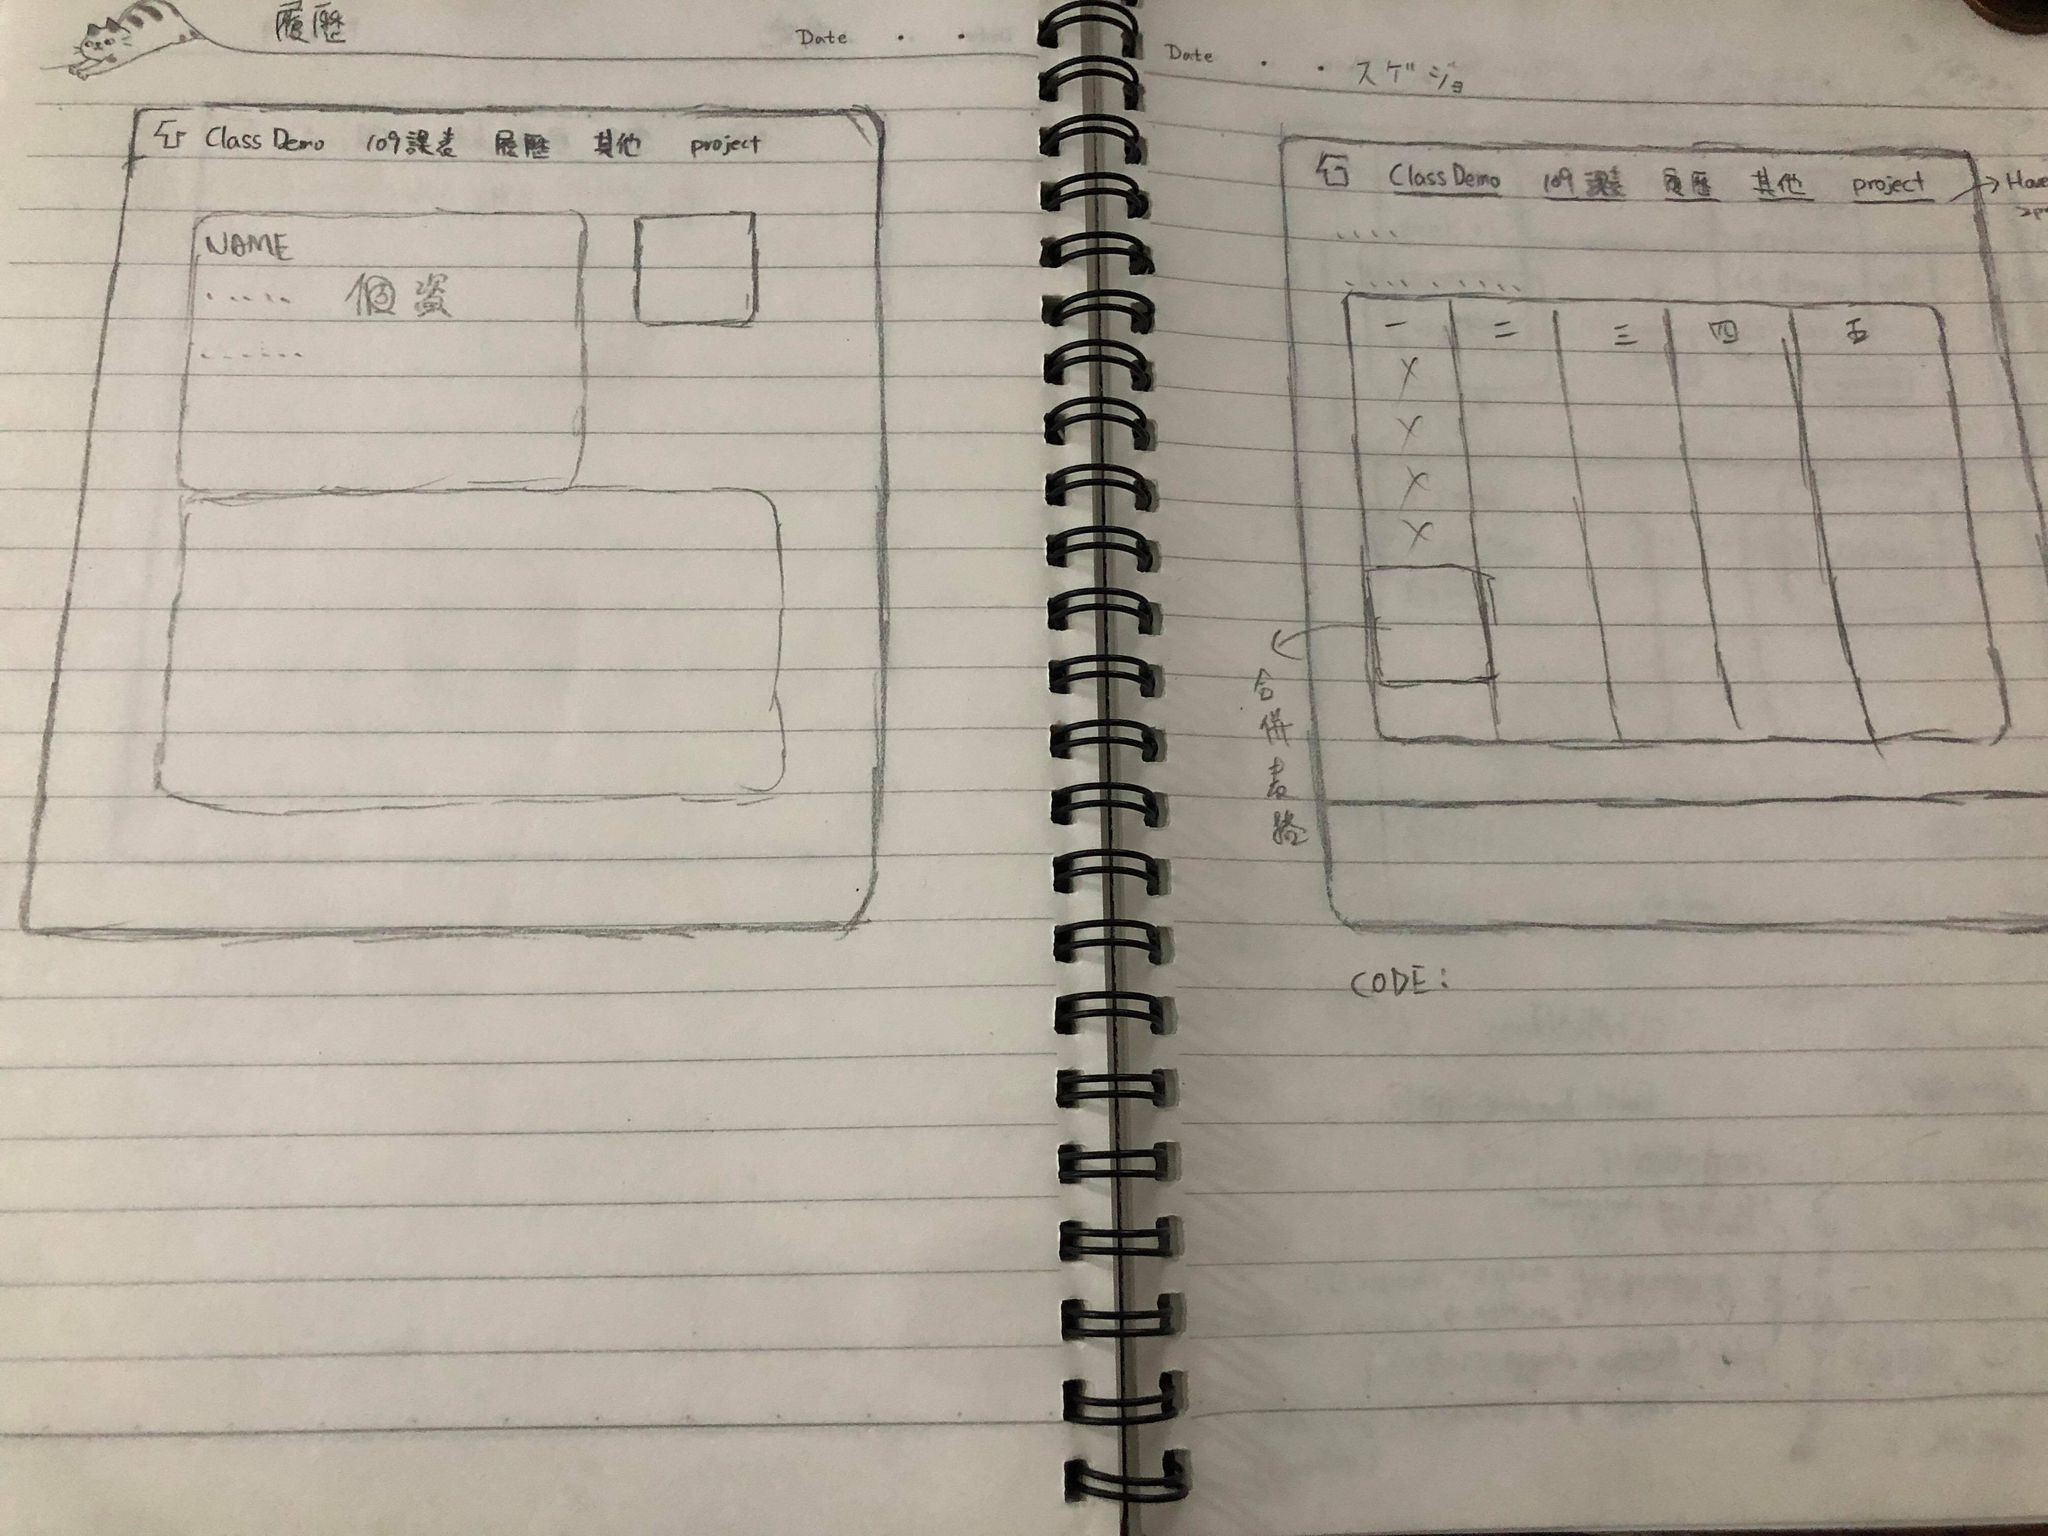 履歷
Date
Class Demo 109課表 履歷 其他 project
NAME
個資
Date
スゲジョ
Class Demo 109課表 履歷 其他 project
一 二 三 四 五
X
X
X
X
合併表格
CODE: